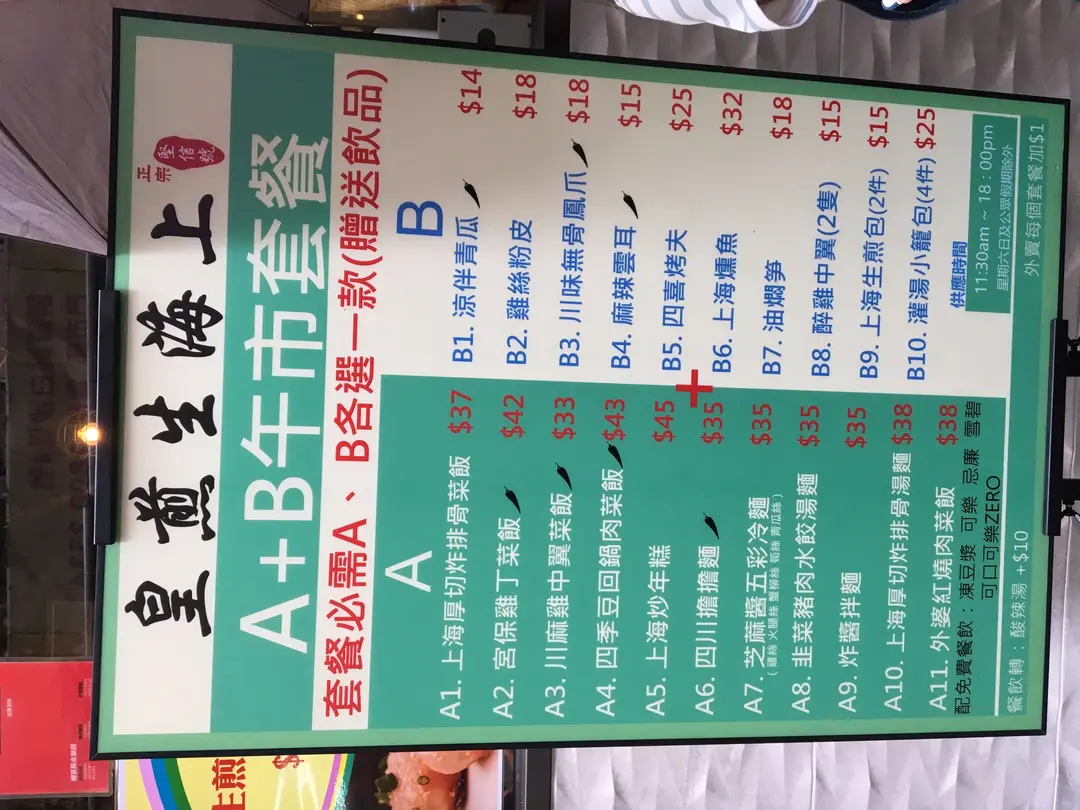 皇煎生海上
正宗
堅信號
A+B午市套餐
套餐必需A、B各選一款(贈送飲品)
A
A1. 上海厚切炸排骨菜飯 $37
A2. 宮保雞丁菜飯 $42
A3. 川麻雞中翼菜飯 $33
A4. 四季豆回鍋肉菜飯 $43
A5. 上海炒年糕 $45
A6. 四川擔擔麵 $35
A7. 芝麻醬五彩冷麵 $35
(雞絲 火腿絲 蟹柳絲 筍絲 青瓜絲)
A8. 韭菜豬肉水餃湯麵 $35
A9. 炸醬拌麵 $35
A10. 上海厚切炸排骨湯麵 $38
A11. 外婆紅燒肉菜飯 $38
+
B
B1. 涼伴青瓜 $14
B2. 雞絲粉皮 $18
B3. 川味無骨鳳爪 $18
B4. 麻辣雲耳 $15
B5. 四喜烤夫 $25
B6. 上海燻魚 $32
B7. 油燜笋 $18
B8. 醉雞中翼(2隻) $15
B9. 上海生煎包(2件) $15
B10. 灌湯小籠包(4件) $25
配免費餐飲：凍豆漿 可樂 忌廉 雪碧
可口可樂ZERO
供應時間
11:30am ~ 18：00pm
星期六日及公眾假期除外
餐飲轉：酸辣湯 +$10
外賣每個套餐加$1
生煎